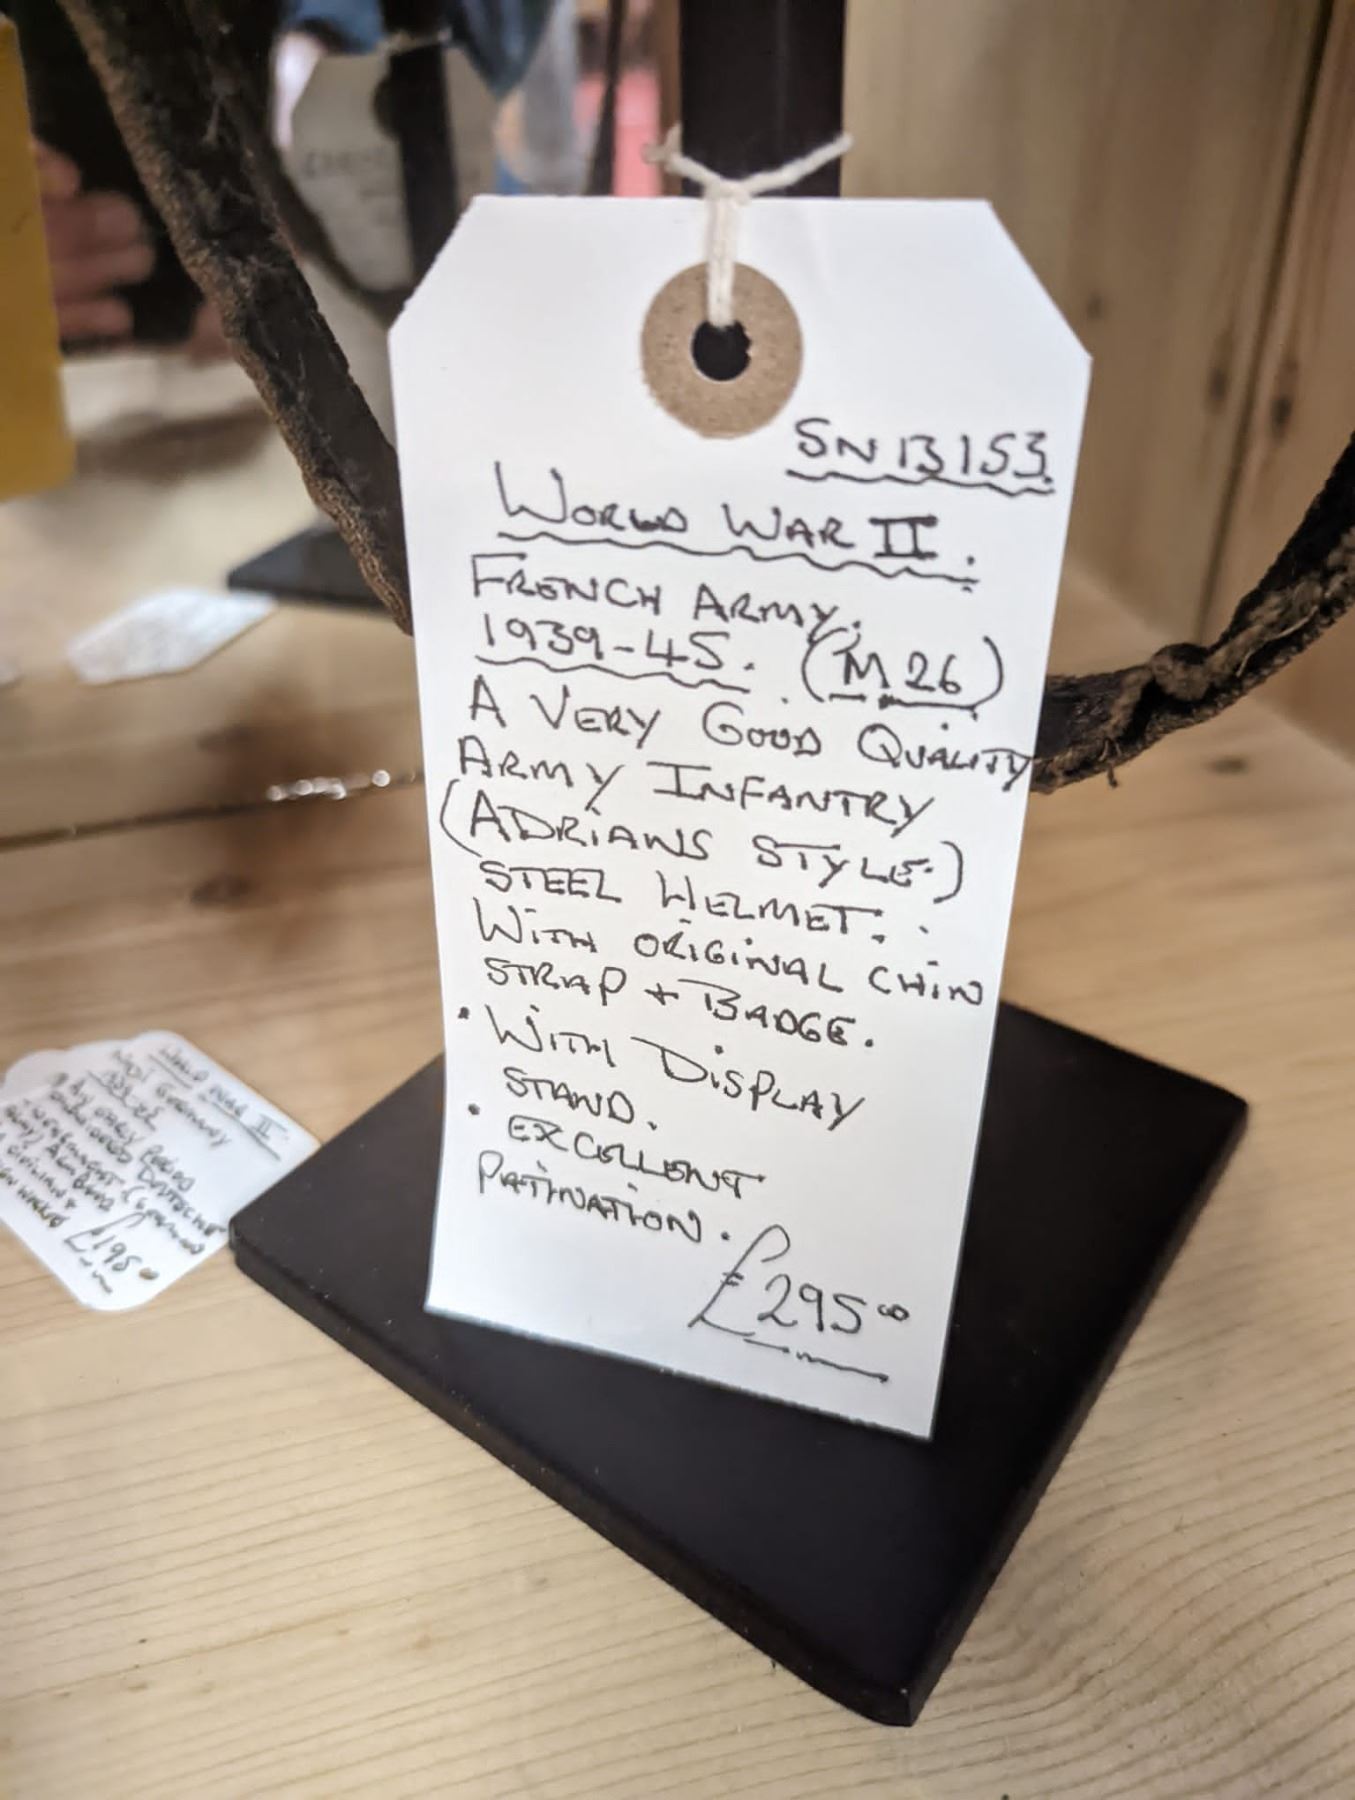 SN 13153.
WORLD WAR II.
FRENCH ARMY.
1939-45. (M26)
A VERY GOOD QUALITY
ARMY INFANTRY
(ADRIANS STYLE.)
STEEL HELMET.
WITH ORIGINAL CHIN
STRAP + BADGE.
• WITH DISPLAY
STAND.
• EXCELLENT
PATINATION.
£295.00
WORLD WAR II.
GERMANY
£195.00